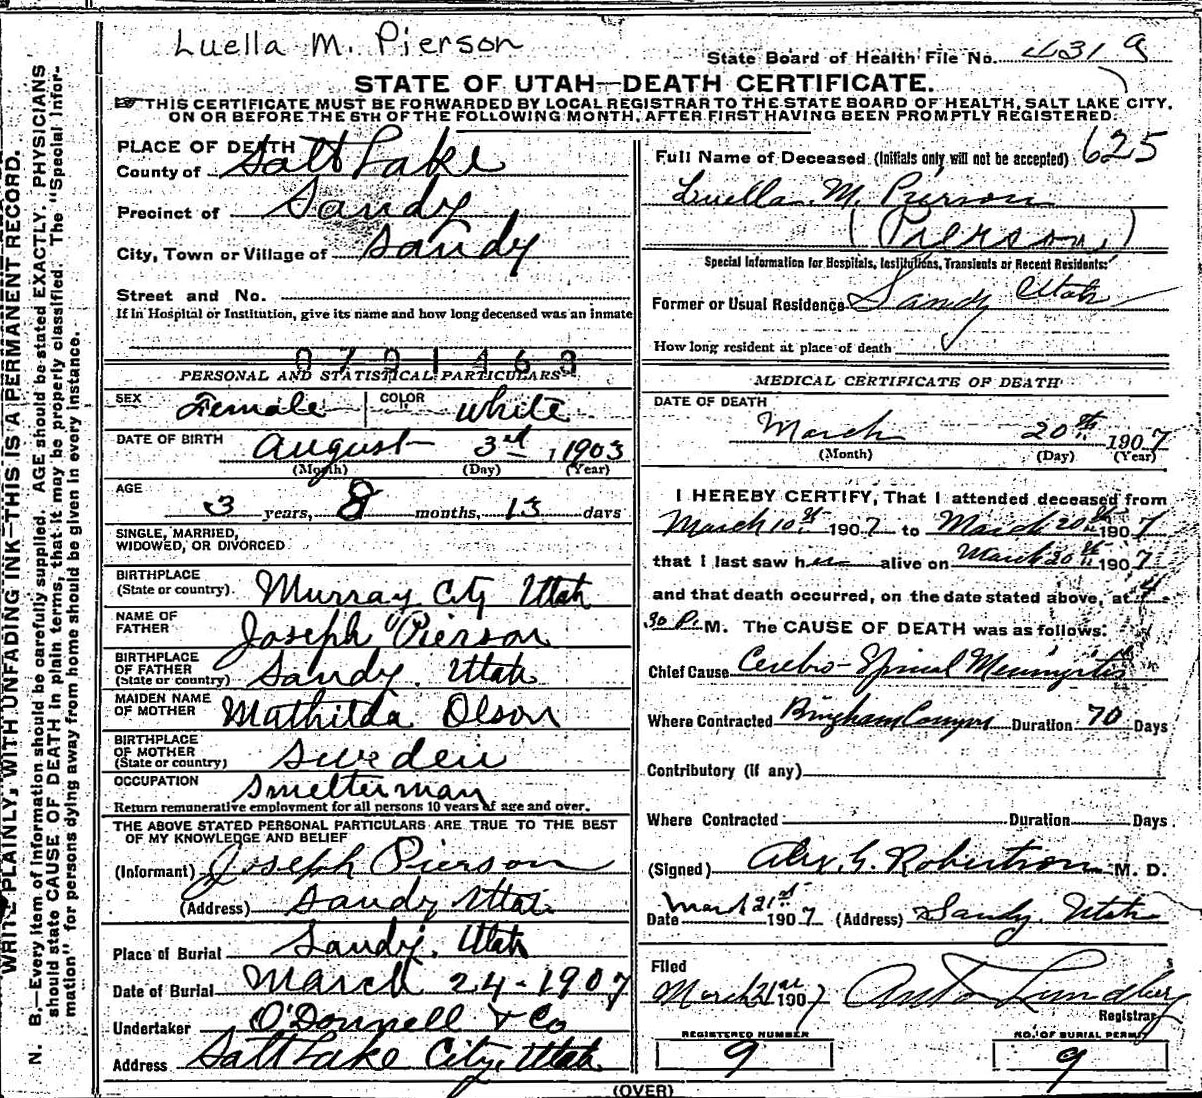 Luella M. Pierson
State Board of Health File No.
STATE OF UTAH—DEATH CERTIFICATE.
☞ THIS CERTIFICATE MUST BE FORWARDED BY LOCAL REGISTRAR TO THE STATE BOARD OF HEALTH, SALT LAKE CITY,
ON OR BEFORE THE 5TH OF THE FOLLOWING MONTH, AFTER FIRST HAVING BEEN PROMPTLY REGISTERED.
WRITE PLAINLY, WITH UNFADING INK—THIS IS A PERMANENT RECORD.
N. B.—Every item of information should be carefully supplied. AGE should be stated EXACTLY. PHYSICIANS
should state CAUSE OF DEATH in plain terms, that it may be properly classified. The "Special Infor-
mation" for persons dying away from home should be given in every instance.
PLACE OF DEATH
County of Salt Lake
Precinct of Sandy
City, Town or Village of Sandy
Street and No.
If in Hospital or Institution, give its name and how long deceased was an inmate
PERSONAL AND STATISTICAL PARTICULARS
SEX Female COLOR White
DATE OF BIRTH August 3rd, 1903
(Month) (Day) (Year)
AGE
3 years, 8 months, 13 days
SINGLE, MARRIED,
WIDOWED, OR DIVORCED
BIRTHPLACE
(State or country) Murray City Utah
NAME OF
FATHER Joseph Pierson
BIRTHPLACE
OF FATHER
(State or country) Sandy, Utah
MAIDEN NAME
OF MOTHER Mathilda Olson
BIRTHPLACE
OF MOTHER
(State or country) Sweden
OCCUPATION Smelterman
Return remunerative employment for all persons 10 years of age and over.
THE ABOVE STATED PERSONAL PARTICULARS ARE TRUE TO THE BEST
OF MY KNOWLEDGE AND BELIEF
(Informant) Joseph Pierson
(Address) Sandy Utah
Place of Burial Sandy, Utah
Date of Burial March 24-1907
Undertaker O'Donnell & Co
Address Salt Lake City, Utah
625
Full Name of Deceased (Initials only will not be accepted)
Luella M. Pierson
(Pierson)
Special Information for Hospitals, Institutions, Transients or Recent Residents:
Former or Usual Residence Sandy Utah
How long resident at place of death
MEDICAL CERTIFICATE OF DEATH
DATE OF DEATH
March 20th 1907
(Month) (Day) (Year)
I HEREBY CERTIFY, That I attended deceased from
March 10th 1907 to March 20th 1907
that I last saw her alive on March 20th 1907
and that death occurred, on the date stated above, at 4
30 P. M. The CAUSE OF DEATH was as follows:
Chief Cause Cerebro-Spinal Meningitis
Where Contracted Bingham Canyon Duration 70 Days
Contributory (if any)
Where Contracted Duration Days
(Signed) Alex. G. Robertson M. D.
Date March 21st 1907 (Address) Sandy, Utah
Filed
March 21st 1907 Anto Lundberg
Registrar
REGISTERED NUMBER
9
NO. OF BURIAL PERMIT
9
(OVER)